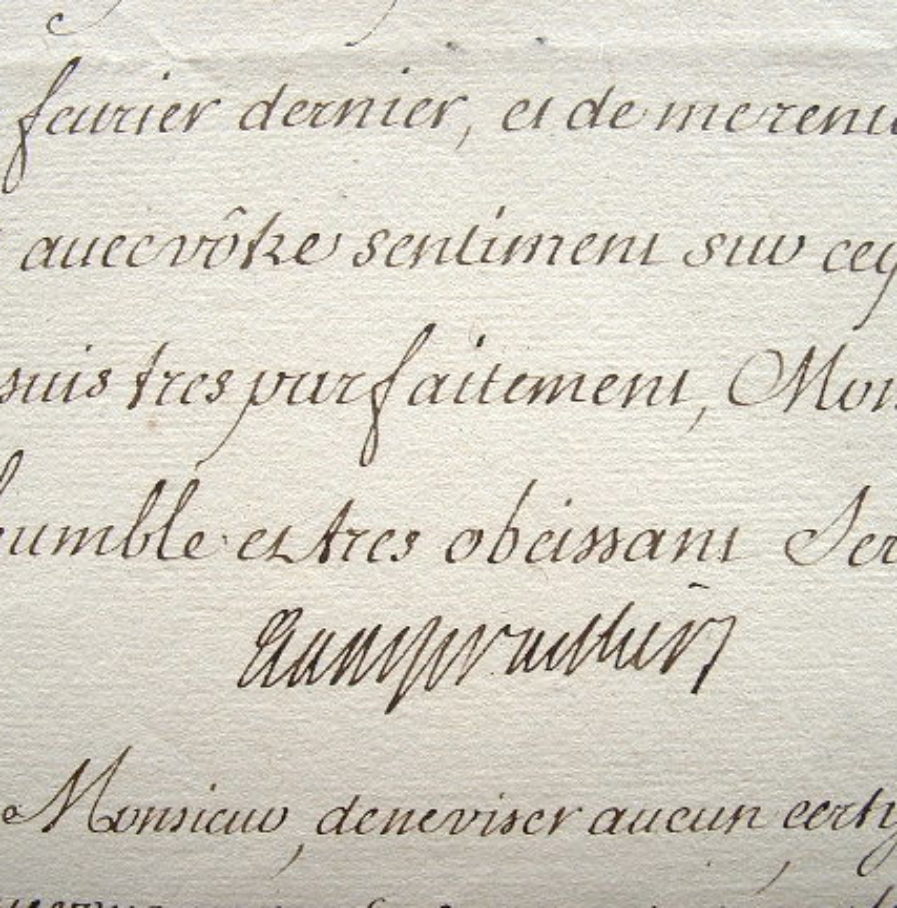 feurier dernier, et de me renu
auec vôtre sentiment sur ceq
suis tres parfaitement, Mon
humble et tres obeissant Ser
Monsieur, de ne viser aucun certi